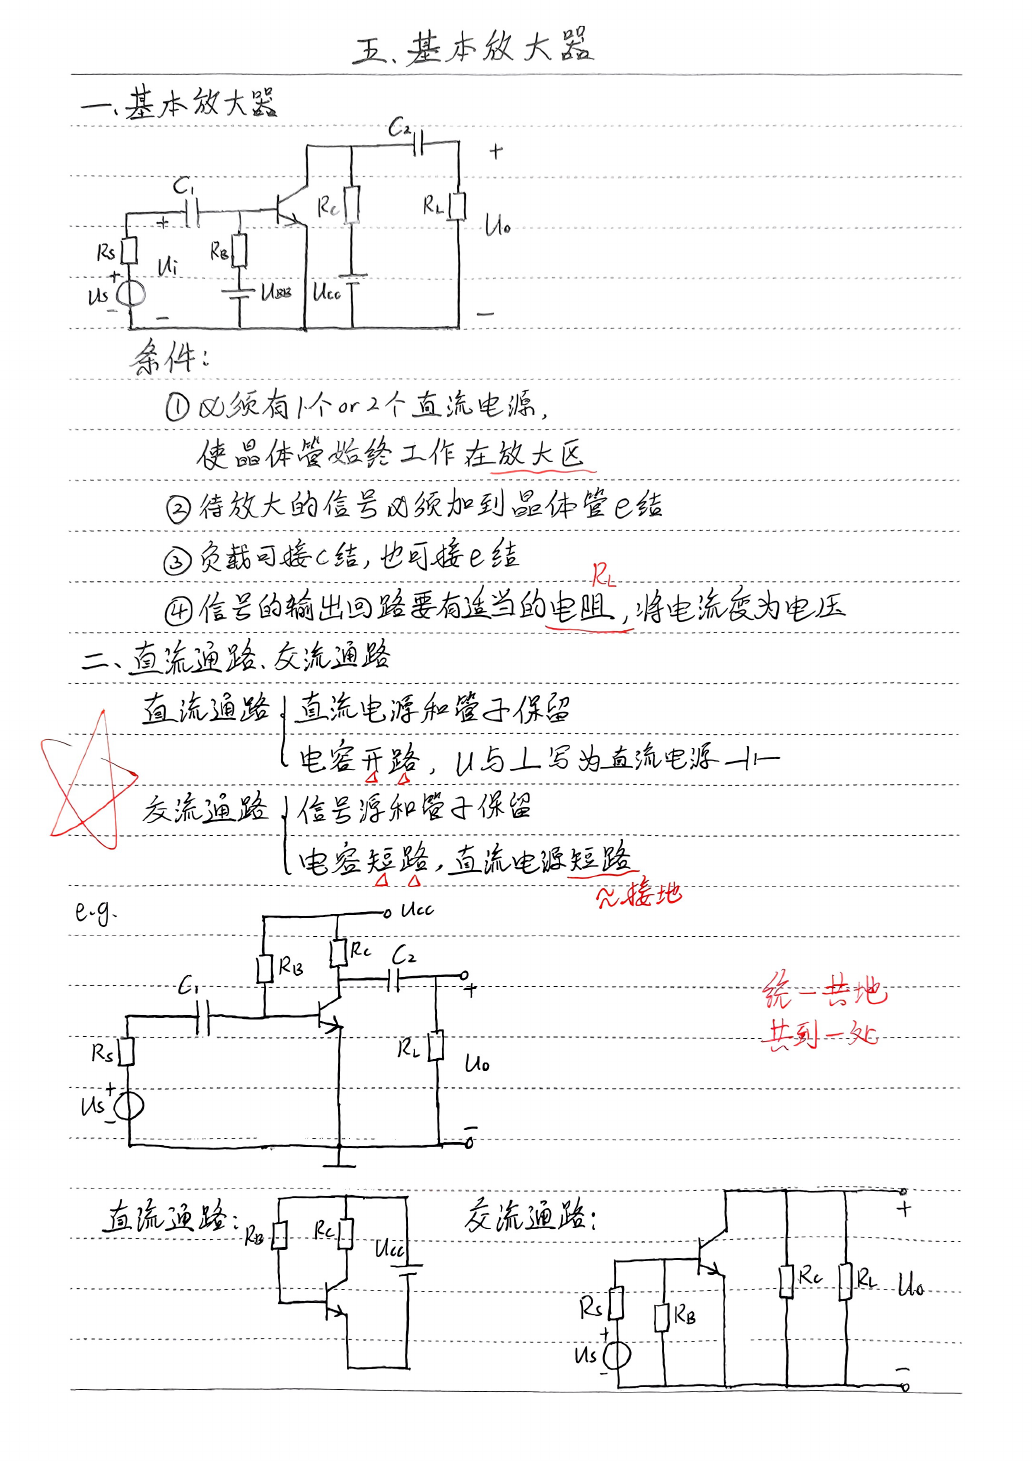 五、基本放大器
一、基本放大器
C₂
+
C₁
Rc
RL
Uo
+
Rs
RB
Ui
+
Us
UBB
Ucc
-
-
-
条件:
①必须有1个or2个直流电源,
使晶体管始终工作在放大区
②待放大的信号必须加到晶体管e结
③负载可接c结,也可接e结
RL
④信号的输出回路要有适当的电阻,将电流变为电压
二、直流通路、交流通路
直流通路 直流电源和管子保留
电容开路, U与⊥写为直流电源 ⊣⊢
交流通路 信号源和管子保留
电容短路,直流电源短路
≈接地
e.g.
Ucc
RB
Rc
C₂
C₁
+
统一共地
共到一处
Rs
RL
Uo
+
Us
-
-
直流通路:
RB
Rc
Ucc
交流通路:
+
Rs
RB
Rc
RL
Uo
+
Us
-
-